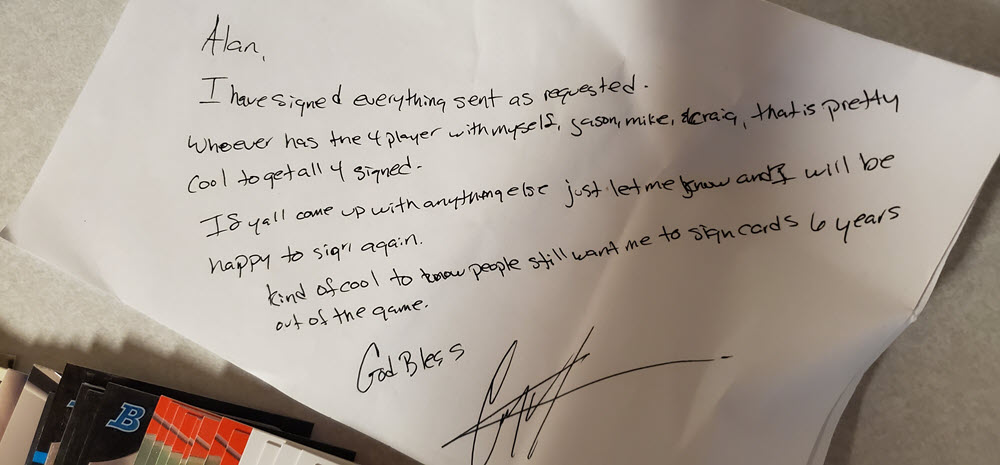 Alan,
I have signed everything sent as requested.
Whoever has the 4 player with myself, Jason, mike, & craig, that is pretty
cool to get all 4 signed.
If yall come up with anything else just let me know and I will be
happy to sign again.
Kind of cool to know people still want me to sign cards 6 years
out of the game.
God Bless
B